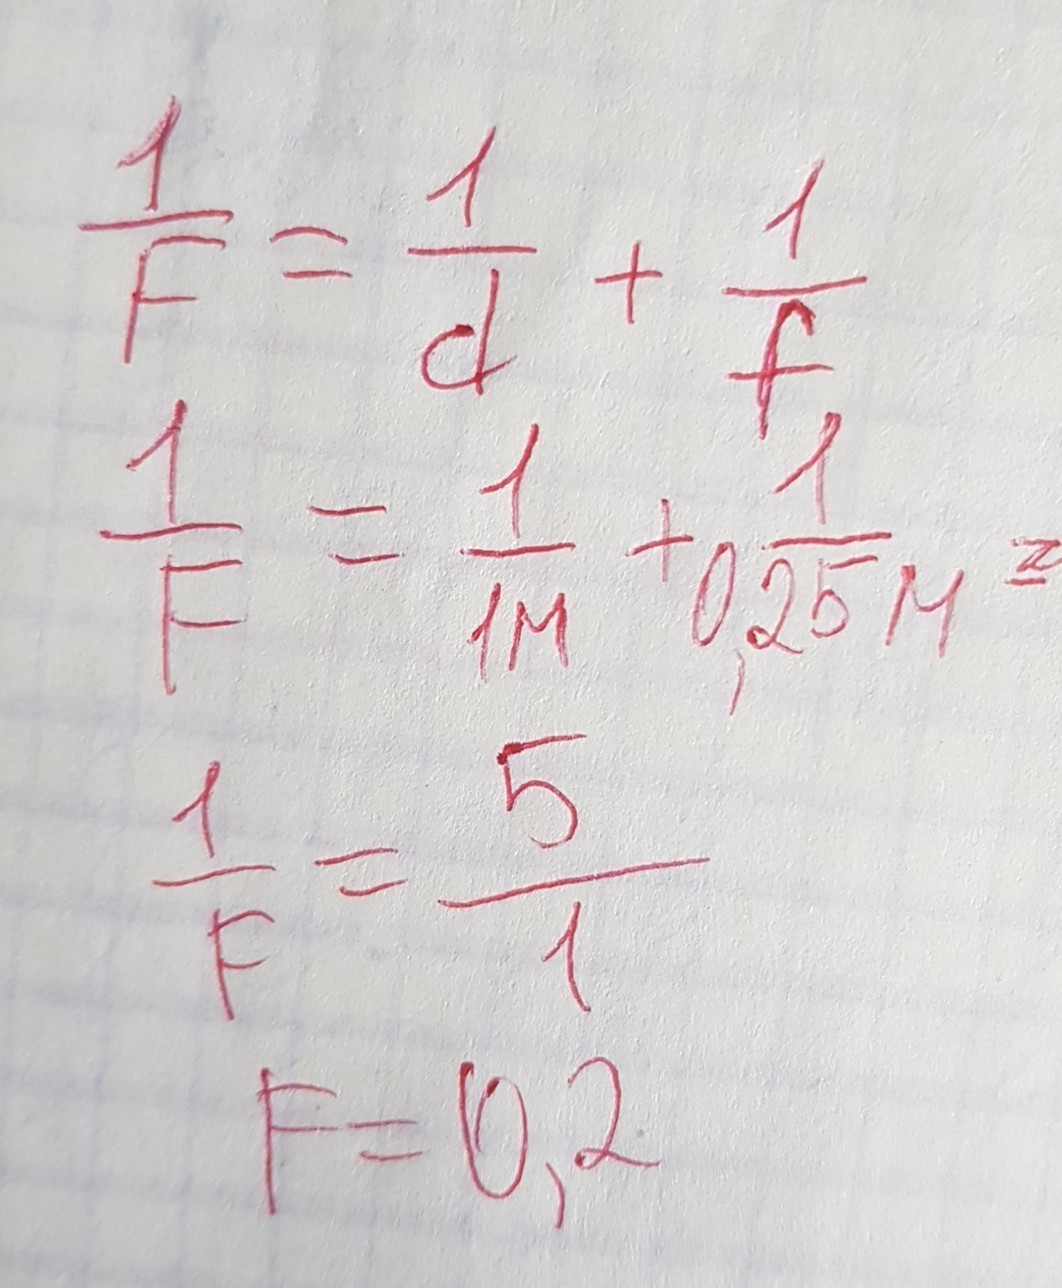 1/F = 1/d + 1/f
1/F = 1/1м + 1/0,25м =
1/F = 5/1
F = 0,2